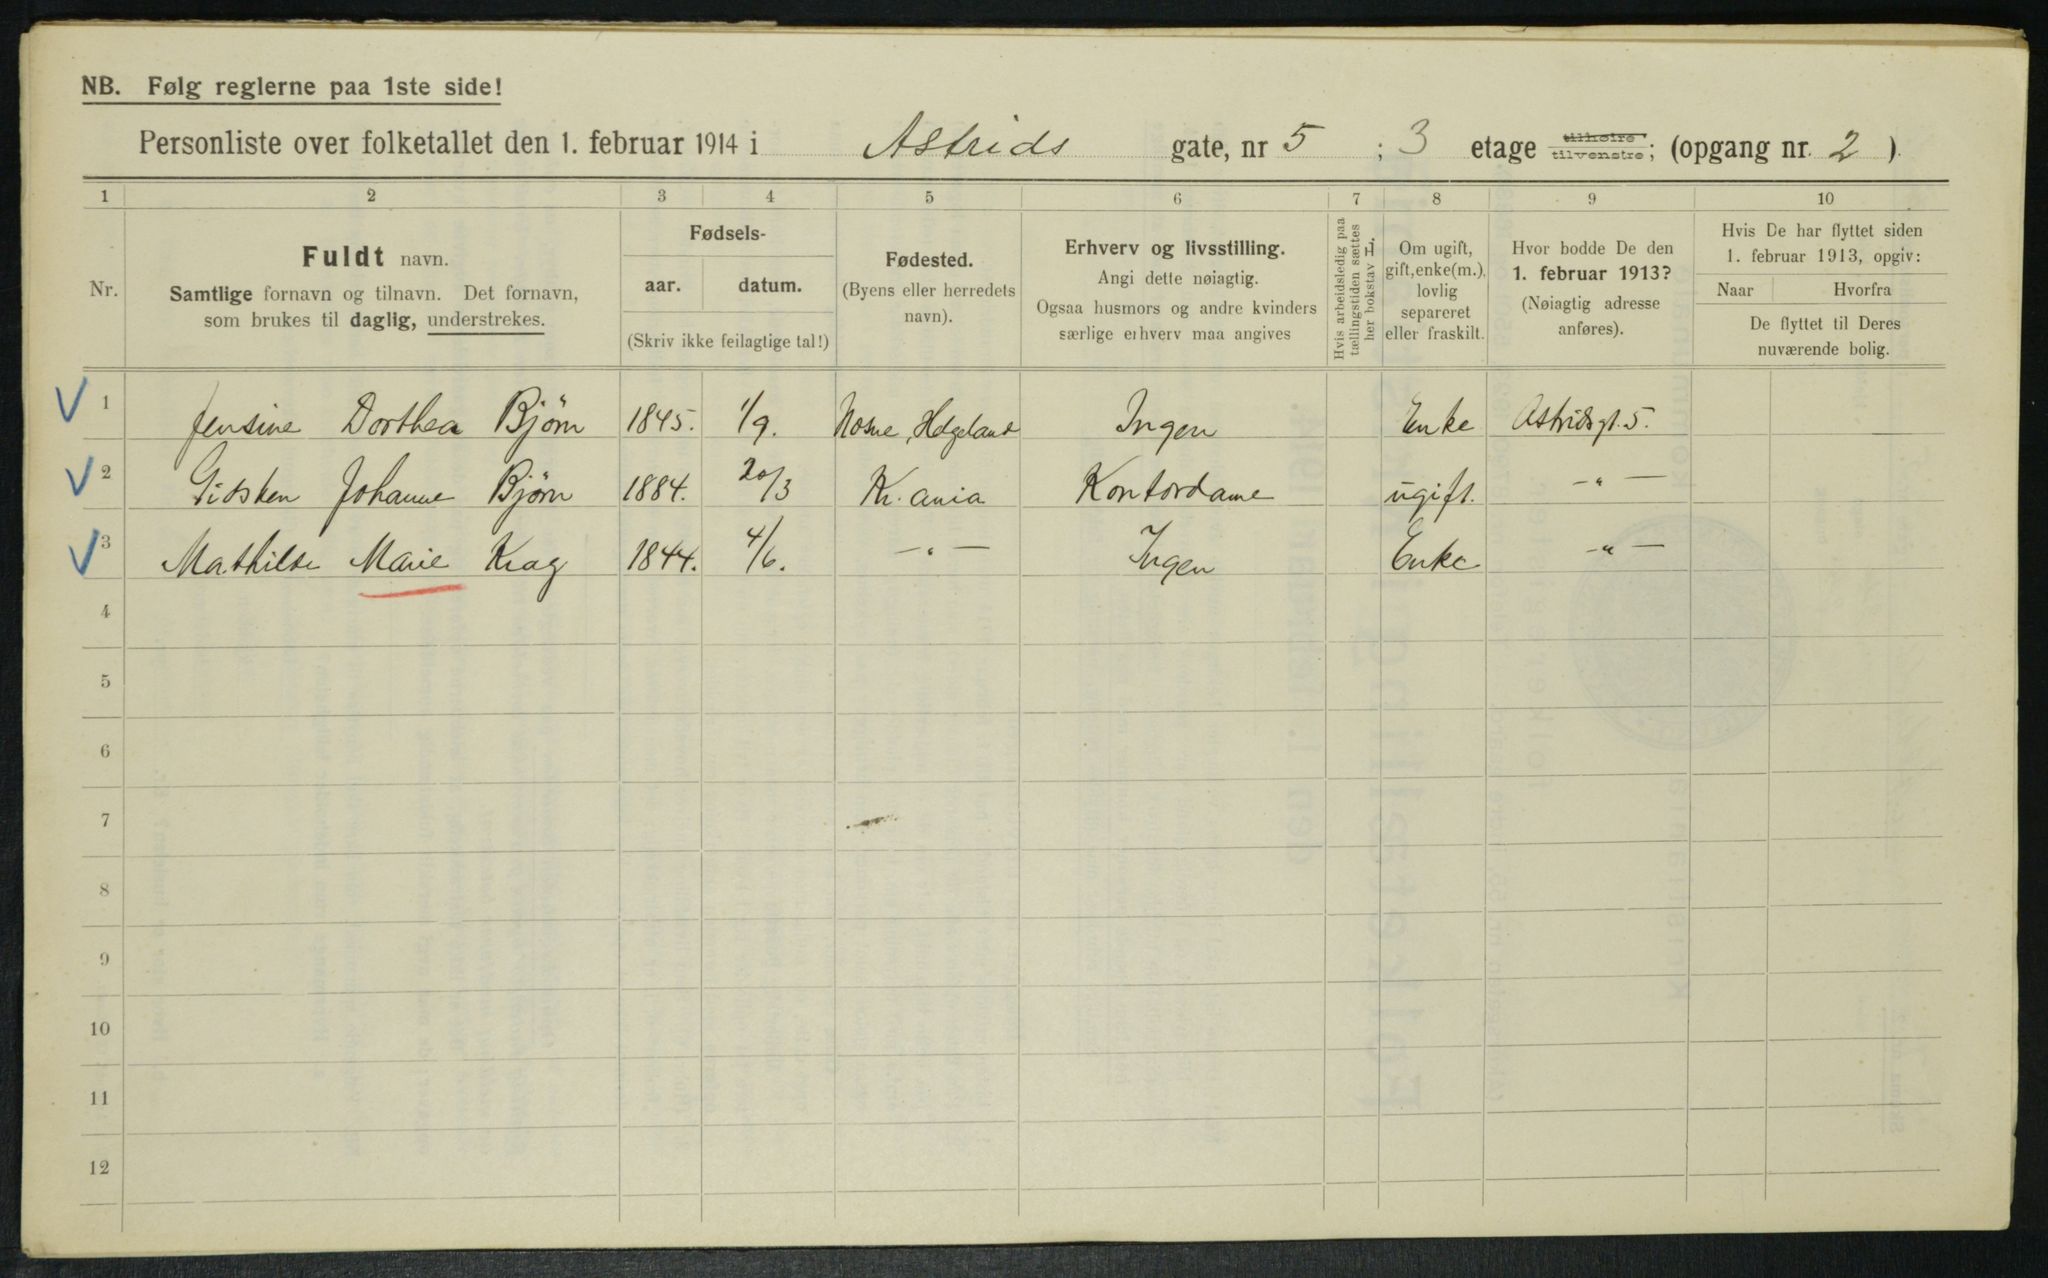 NB. Følg reglerne paa 1ste side!
Personliste over folketallet den 1. februar 1914 i Astrids gate, nr 5 ; 3 etage tilhøire tilvenstre; (opgang nr. 2 ).
1 2 3 4 5 6 7 8 9 10
Nr.
Fuldt navn.
Samtlige fornavn og tilnavn. Det fornavn,
som brukes til daglig, understrekes.
Fødsels-
aar. datum.
(Skriv ikke feilagtige tal!)
Fødested.
(Byens eller herredets
navn).
Erhverv og livsstilling.
Angi dette nøiagtig.
Ogsaa husmors og andre kvinders
særlige erhverv maa angives
Hvis arbeidsledig paa
tællingstiden sættes
her bokstav L.
Om ugift,
gift, enke(m.),
lovlig
separeret
eller fraskilt.
Hvor bodde De den
1. februar 1913?
(Nøiagtig adresse
anføres).
Hvis De har flyttet siden
1. februar 1913, opgiv:
Naar Hvorfra
De flyttet til Deres
nuværende bolig.
1 Jensine Dorthea Bjørn 1845. 1/9. Nesne, Helgeland Ingen Enke Astridsgt. 5.
2 Gidsken Johanne Bjørn 1884. 20/3 Kr.ania Kontordame ugift. —"—
3 Mathilde Marie Krag 1844. 4/6. —"— Ingen Enke —"—
4
5
6
7
8
9
10
11
12